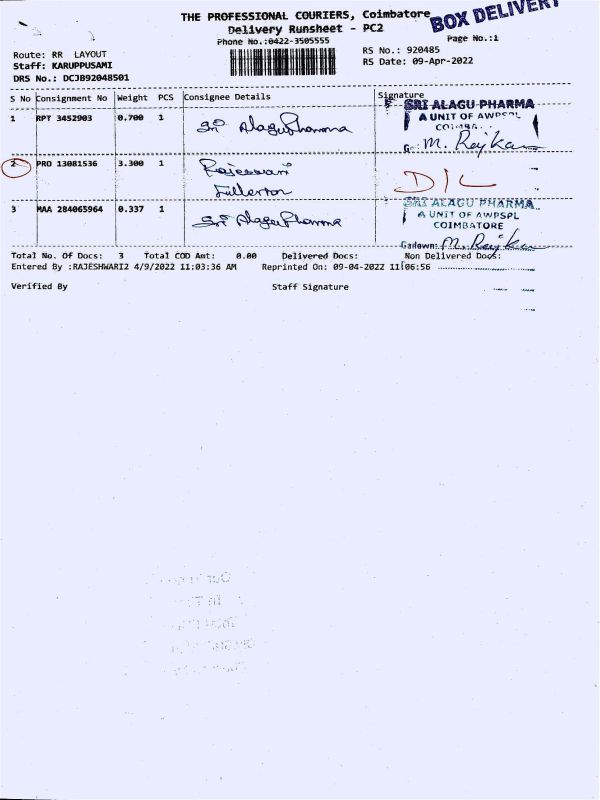 THE PROFESSIONAL COURIERS, Coimbatore
BOX DELIVERY
Delivery Runsheet - PC2
Phone No.:0422-3505555
Page No.:1
Route: RR LAYOUT
RS No.: 920485
Staff: KARUPPUSAMI
RS Date: 09-Apr-2022
DRS No.: DCJB92048501
S No Consignment No Weight PCS Consignee Details Signature
1 RPT 3452903 0.700 1 Sri Alagu Pharma
SRI ALAGU PHARMA
A UNIT OF AWPSPL
M. Raj
2 PRO 13081536 3.300 1 Rajeswari
Fullerton
D/L
3 MAA 284065964 0.337 1 Sri Alagu Pharma
SRI ALAGU PHARMA
A UNIT OF AWPSPL
COIMBATORE
Godown: M. Raj
Total No. Of Docs: 3 Total COD Amt: 0.00 Delivered Docs: Non Delivered Docs:
Entered By :RAJESHWARI2 4/9/2022 11:03:36 AM Reprinted On: 09-04-2022 11:06:56
Verified By Staff Signature